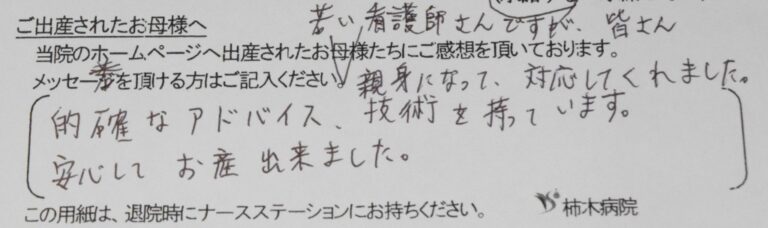 ご出産されたお母様へ
若い看護師さんですが、皆さん
当院のホームページへ出産されたお母様たちにご感想を頂いております。
メッセージを頂ける方はご記入ください。
親身になって、対応してくれました。
的確なアドバイス、技術を持っています。
安心してお産出来ました。
この用紙は、退院時にナースステーションにお持ちください。
柿木病院